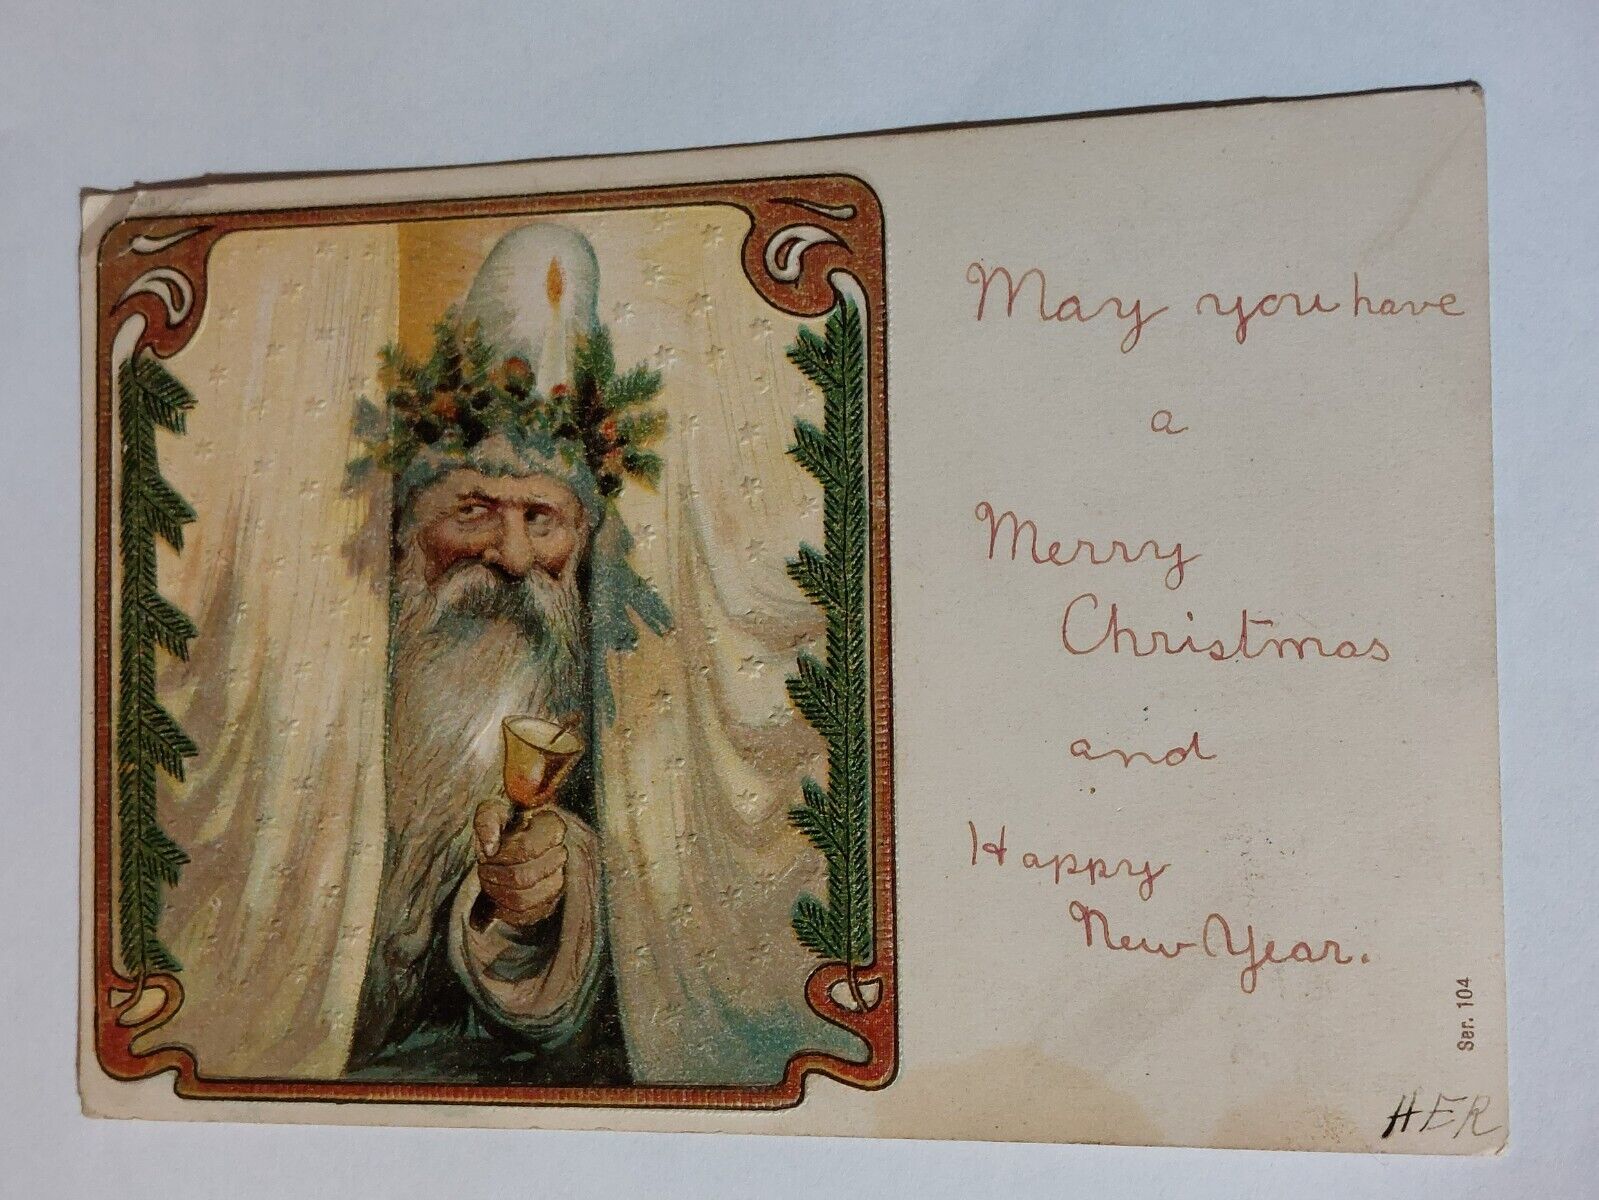 May you have
a
Merry
Christmas
and
Happy
New Year.
Ser. 104
HER